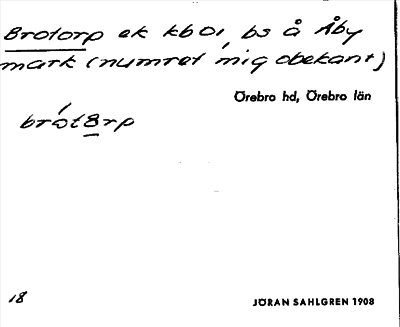 Brotorp ek kb 01, bs å Åby
mark (numret mig obekant)
Örebro hd, Örebro län
brót8rp
18
JÖRAN SAHLGREN 1908